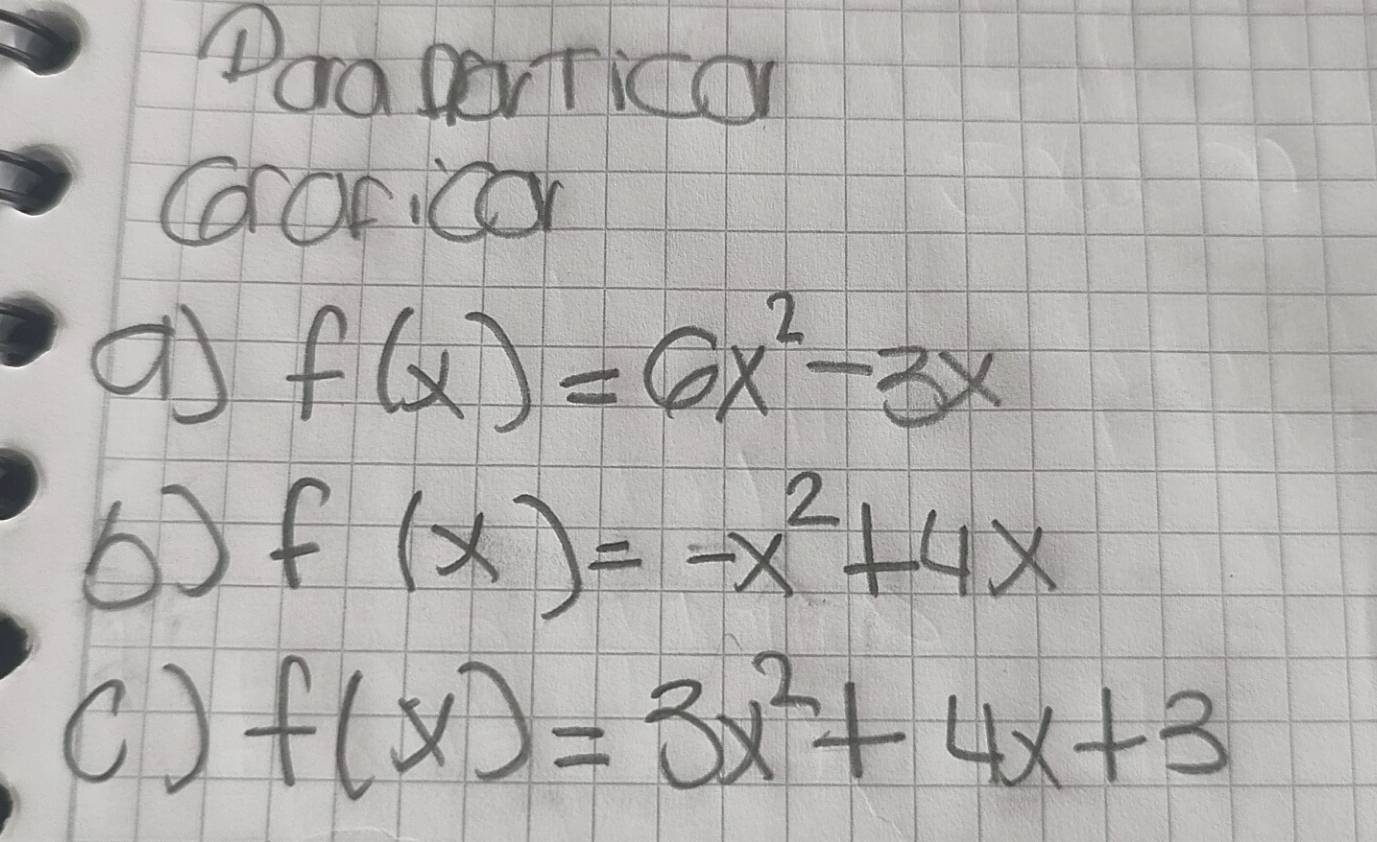 Para Particar
Graficar
a) f(x) = 6x² - 3x
b) f (x) = -x² + 4x
c) f(x) = 3x² + 4x + 3